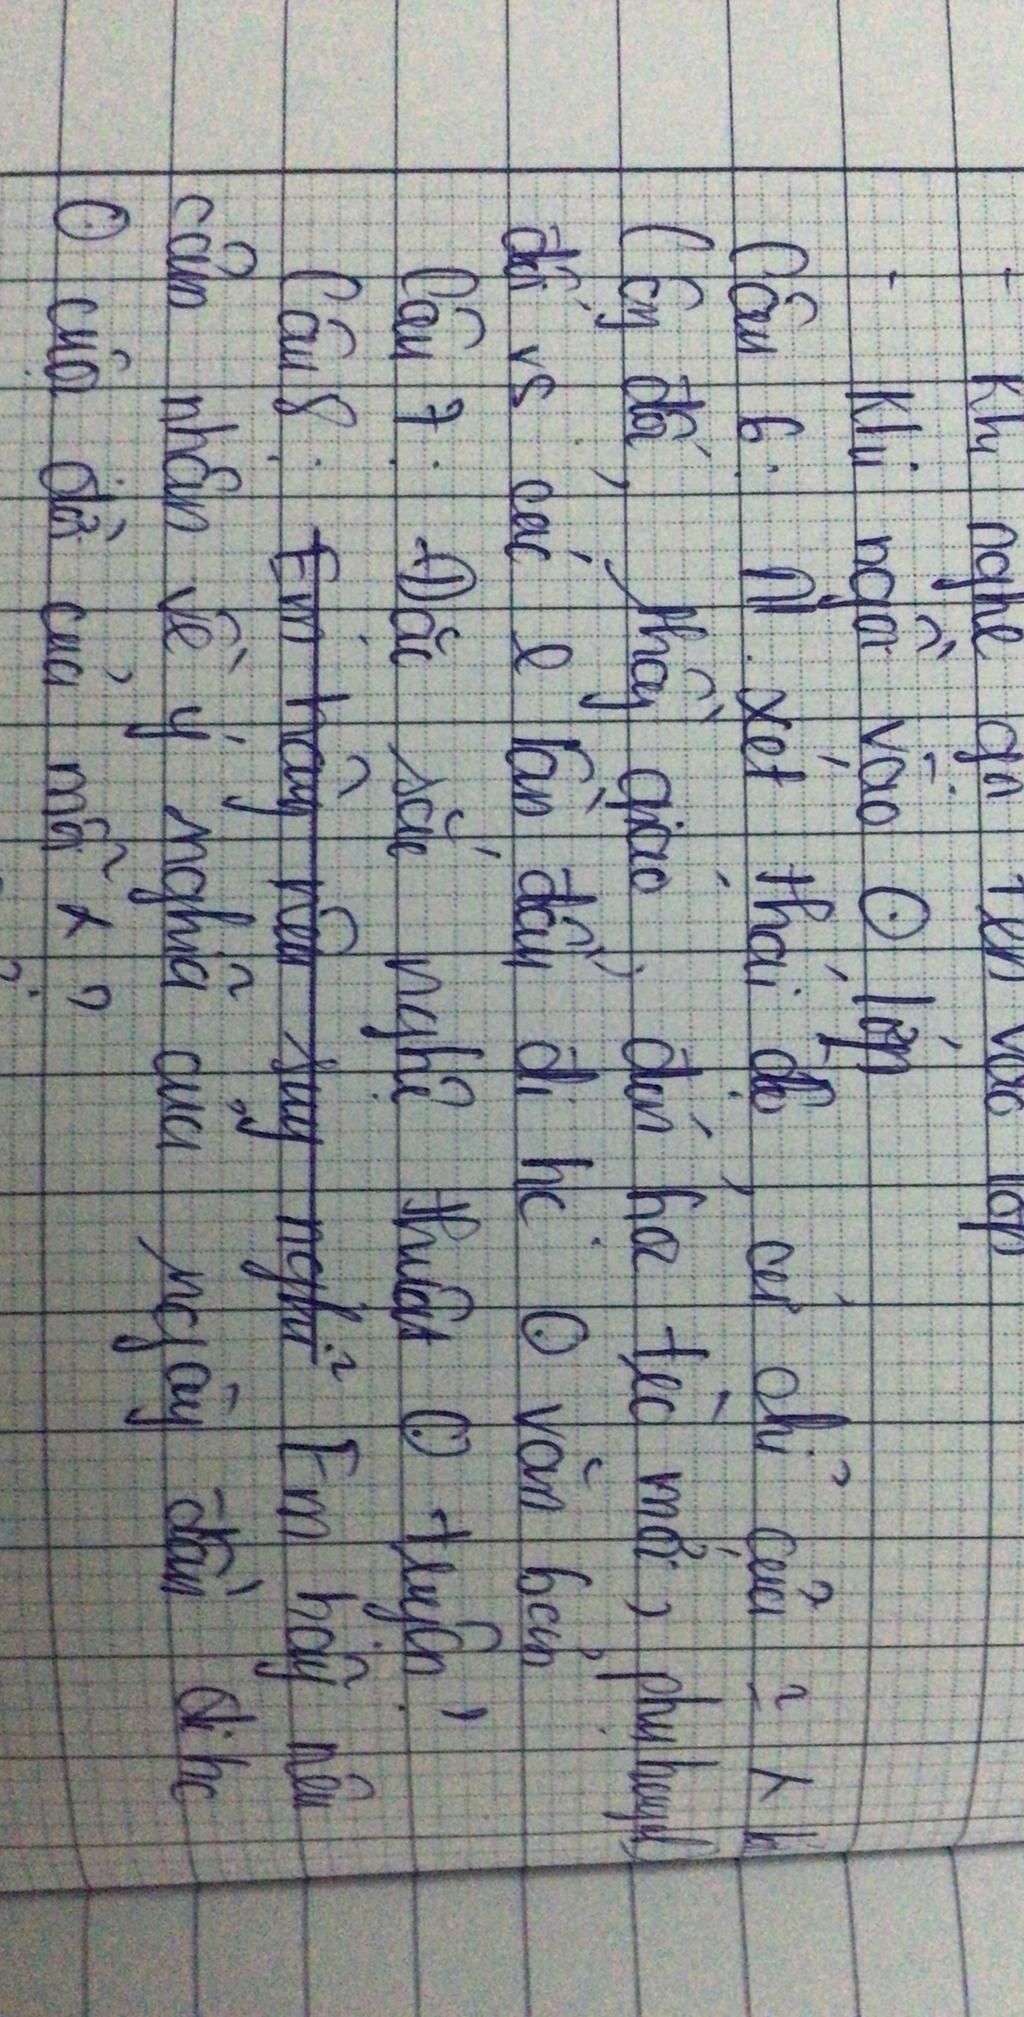 - Khi nghe gọi tên vào lớp
- Khi ngồi vào ⊙ lớp
Câu 6: N.xét thái độ, cử chỉ của ~ λ
(ông đốc, thầy giáo, đón học trò mới, phụ huynh)
đối vs các e lần đầu đi hc ⊙ văn bản
Câu 7: Đặc sắc nghệ thuật ⊙ truyện
Câu 8: Em hãy nêu suy nghĩ Em hãy nêu
cảm nhận về ý nghĩa của ngày đầu đi hc
⊙ cuộc đời của mỗi λ?